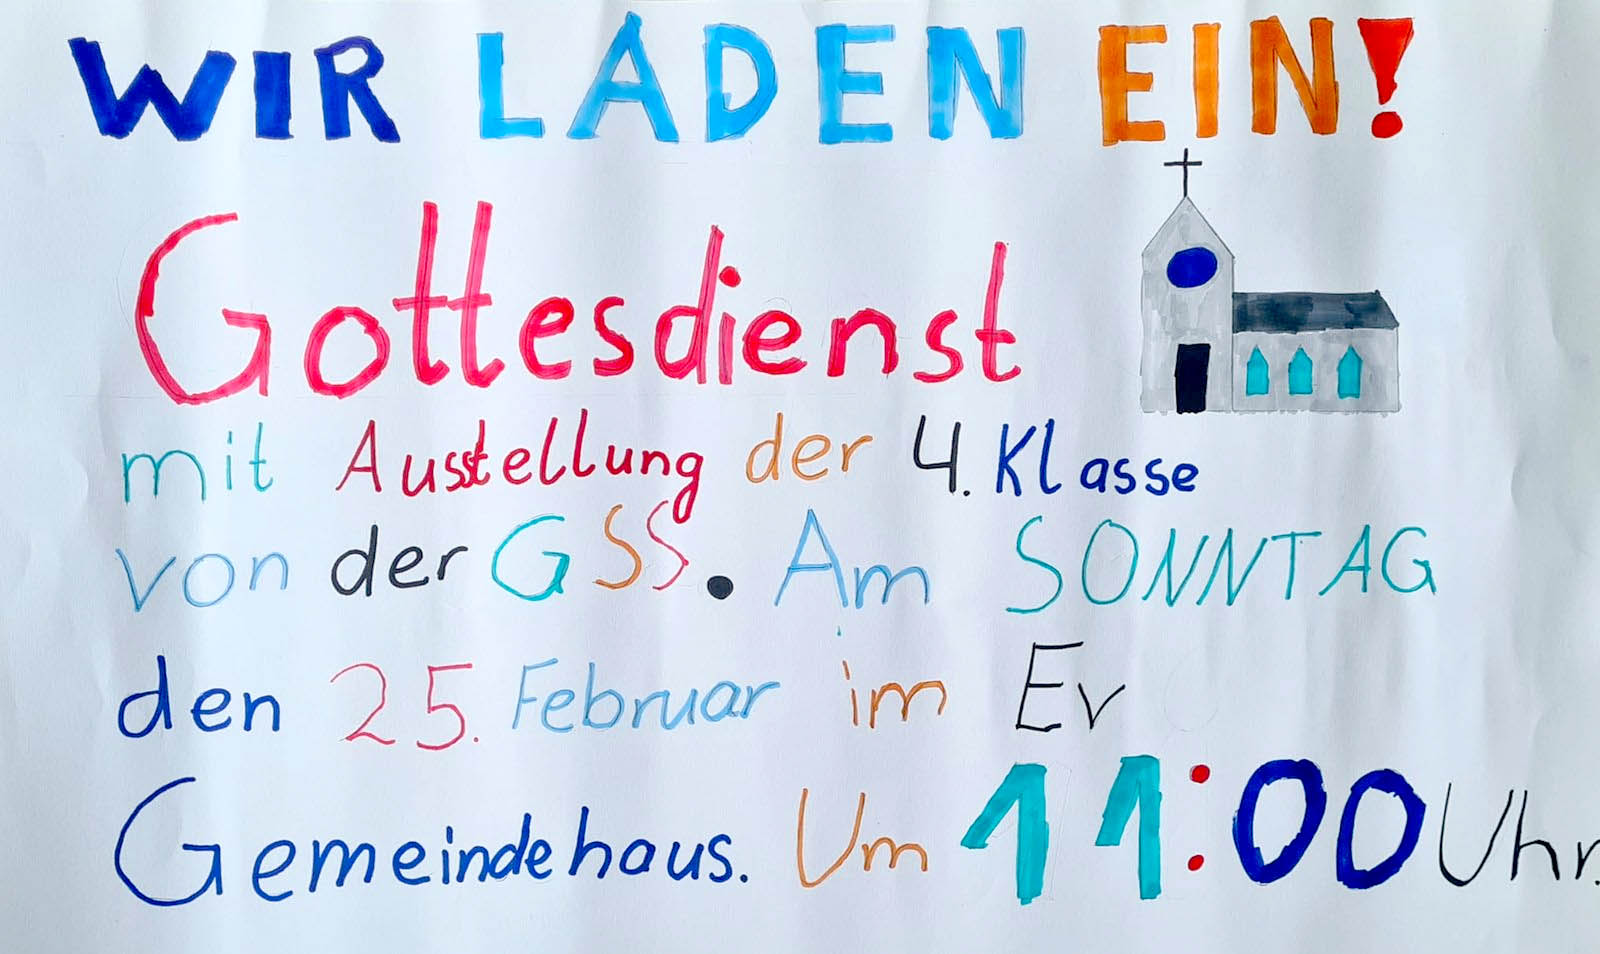 WIR LADEN EIN!
Gottesdienst
mit Ausstellung der 4. Klasse
von der GSS. Am SONNTAG
den 25. Februar im Ev
Gemeindehaus. Um 11:00 Uhr.